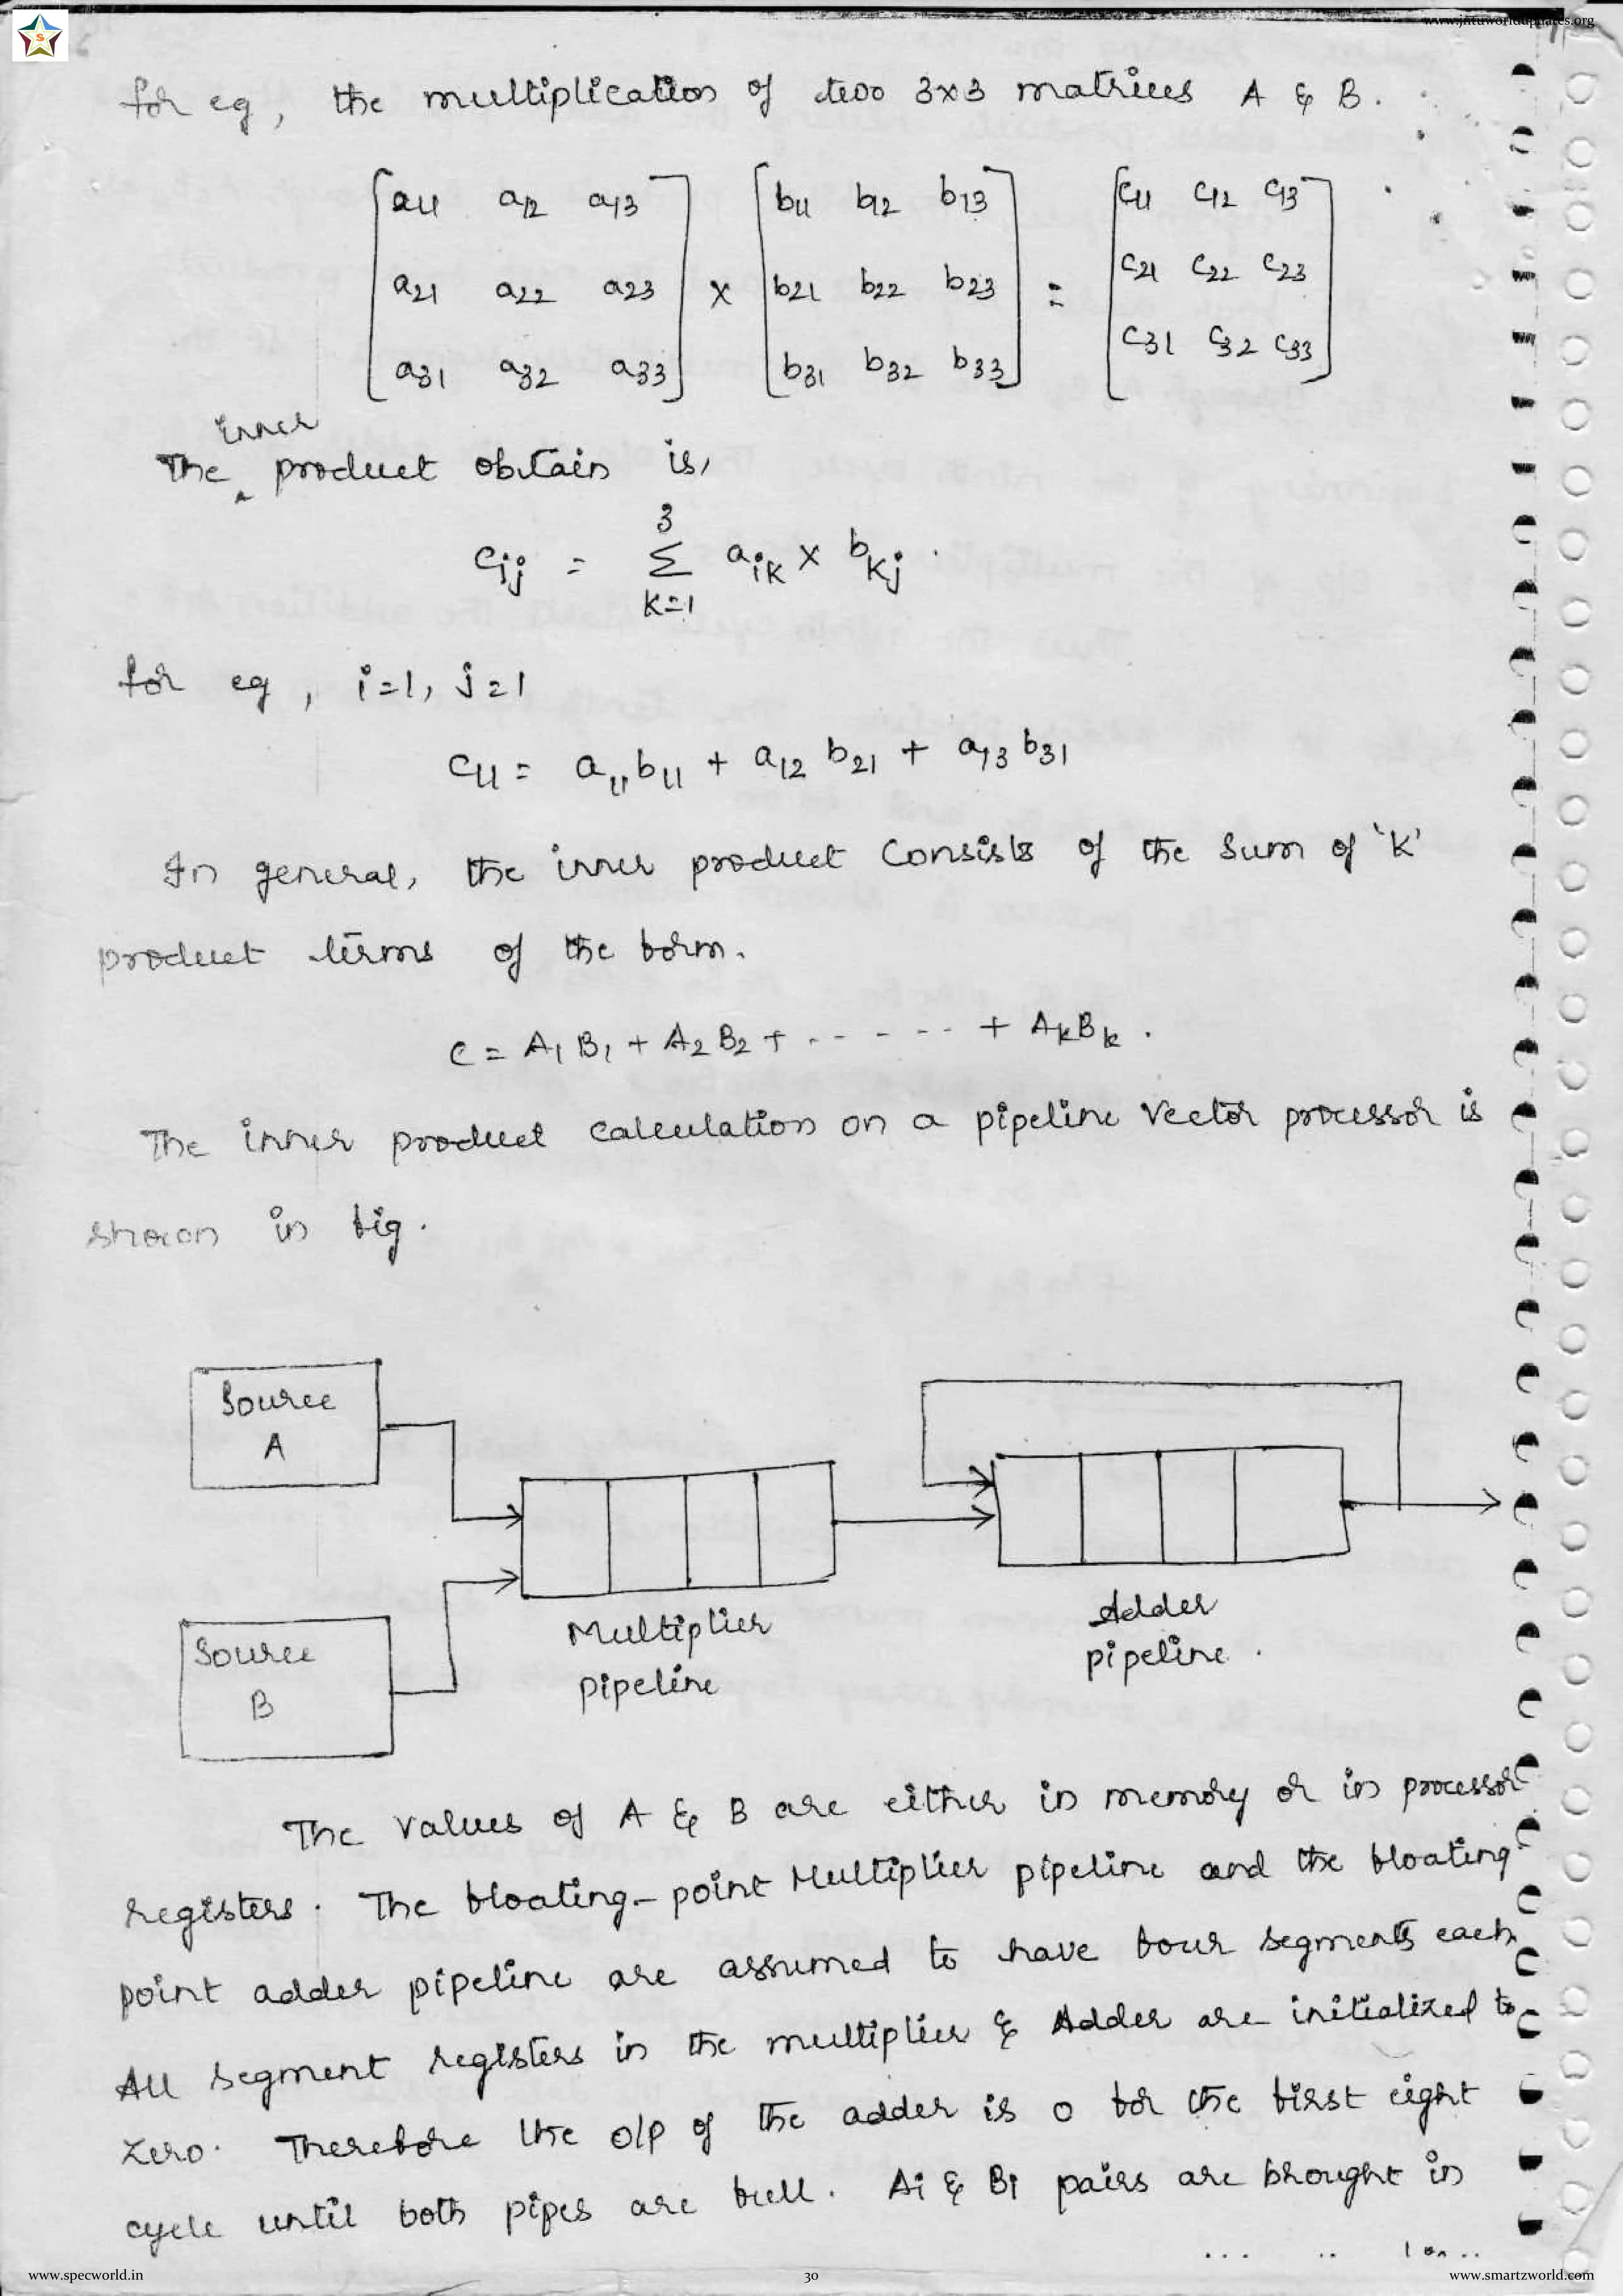 www.jntuworldupdates.org
S
for eg, the multiplication of two 3x3 matrices A & B.
a11 a12 a13 b11 b12 b13 c11 c12 c13
a21 a22 a23 x b21 b22 b23 = c21 c22 c23
a31 a32 a33 b31 b32 b33 c31 c32 c33
inner
The product obtain is,
3
cij = Σ aik x bkj .
k=1
for eg, i=1, j=1
c11 = a11 b11 + a12 b21 + a13 b31
In general, the inner product consists of the sum of 'K'
product terms of the form.
C = A1 B1 + A2 B2 + . - - - - - + AkBk .
The inner product calculation on a pipeline vector processor is
shown in fig.
Source
A
Source
B
Multiplier
pipeline
Adder
pipeline .
The values of A & B are either in memory or in processor
registers. The floating-point Multiplier pipeline and the floating
point adder pipeline are assumed to have four segments each.
All segment registers in the multiplier & Adder are initialized to
zero. Therefore the o/p of the adder is 0 for the first eight
cycle until both pipes are full. Ai & Bi pairs are brought in
www.specworld.in 30 www.smartzworld.com